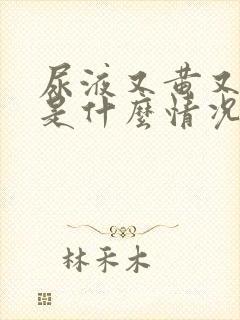 尿液又黄又
是什麼情况
林禾木